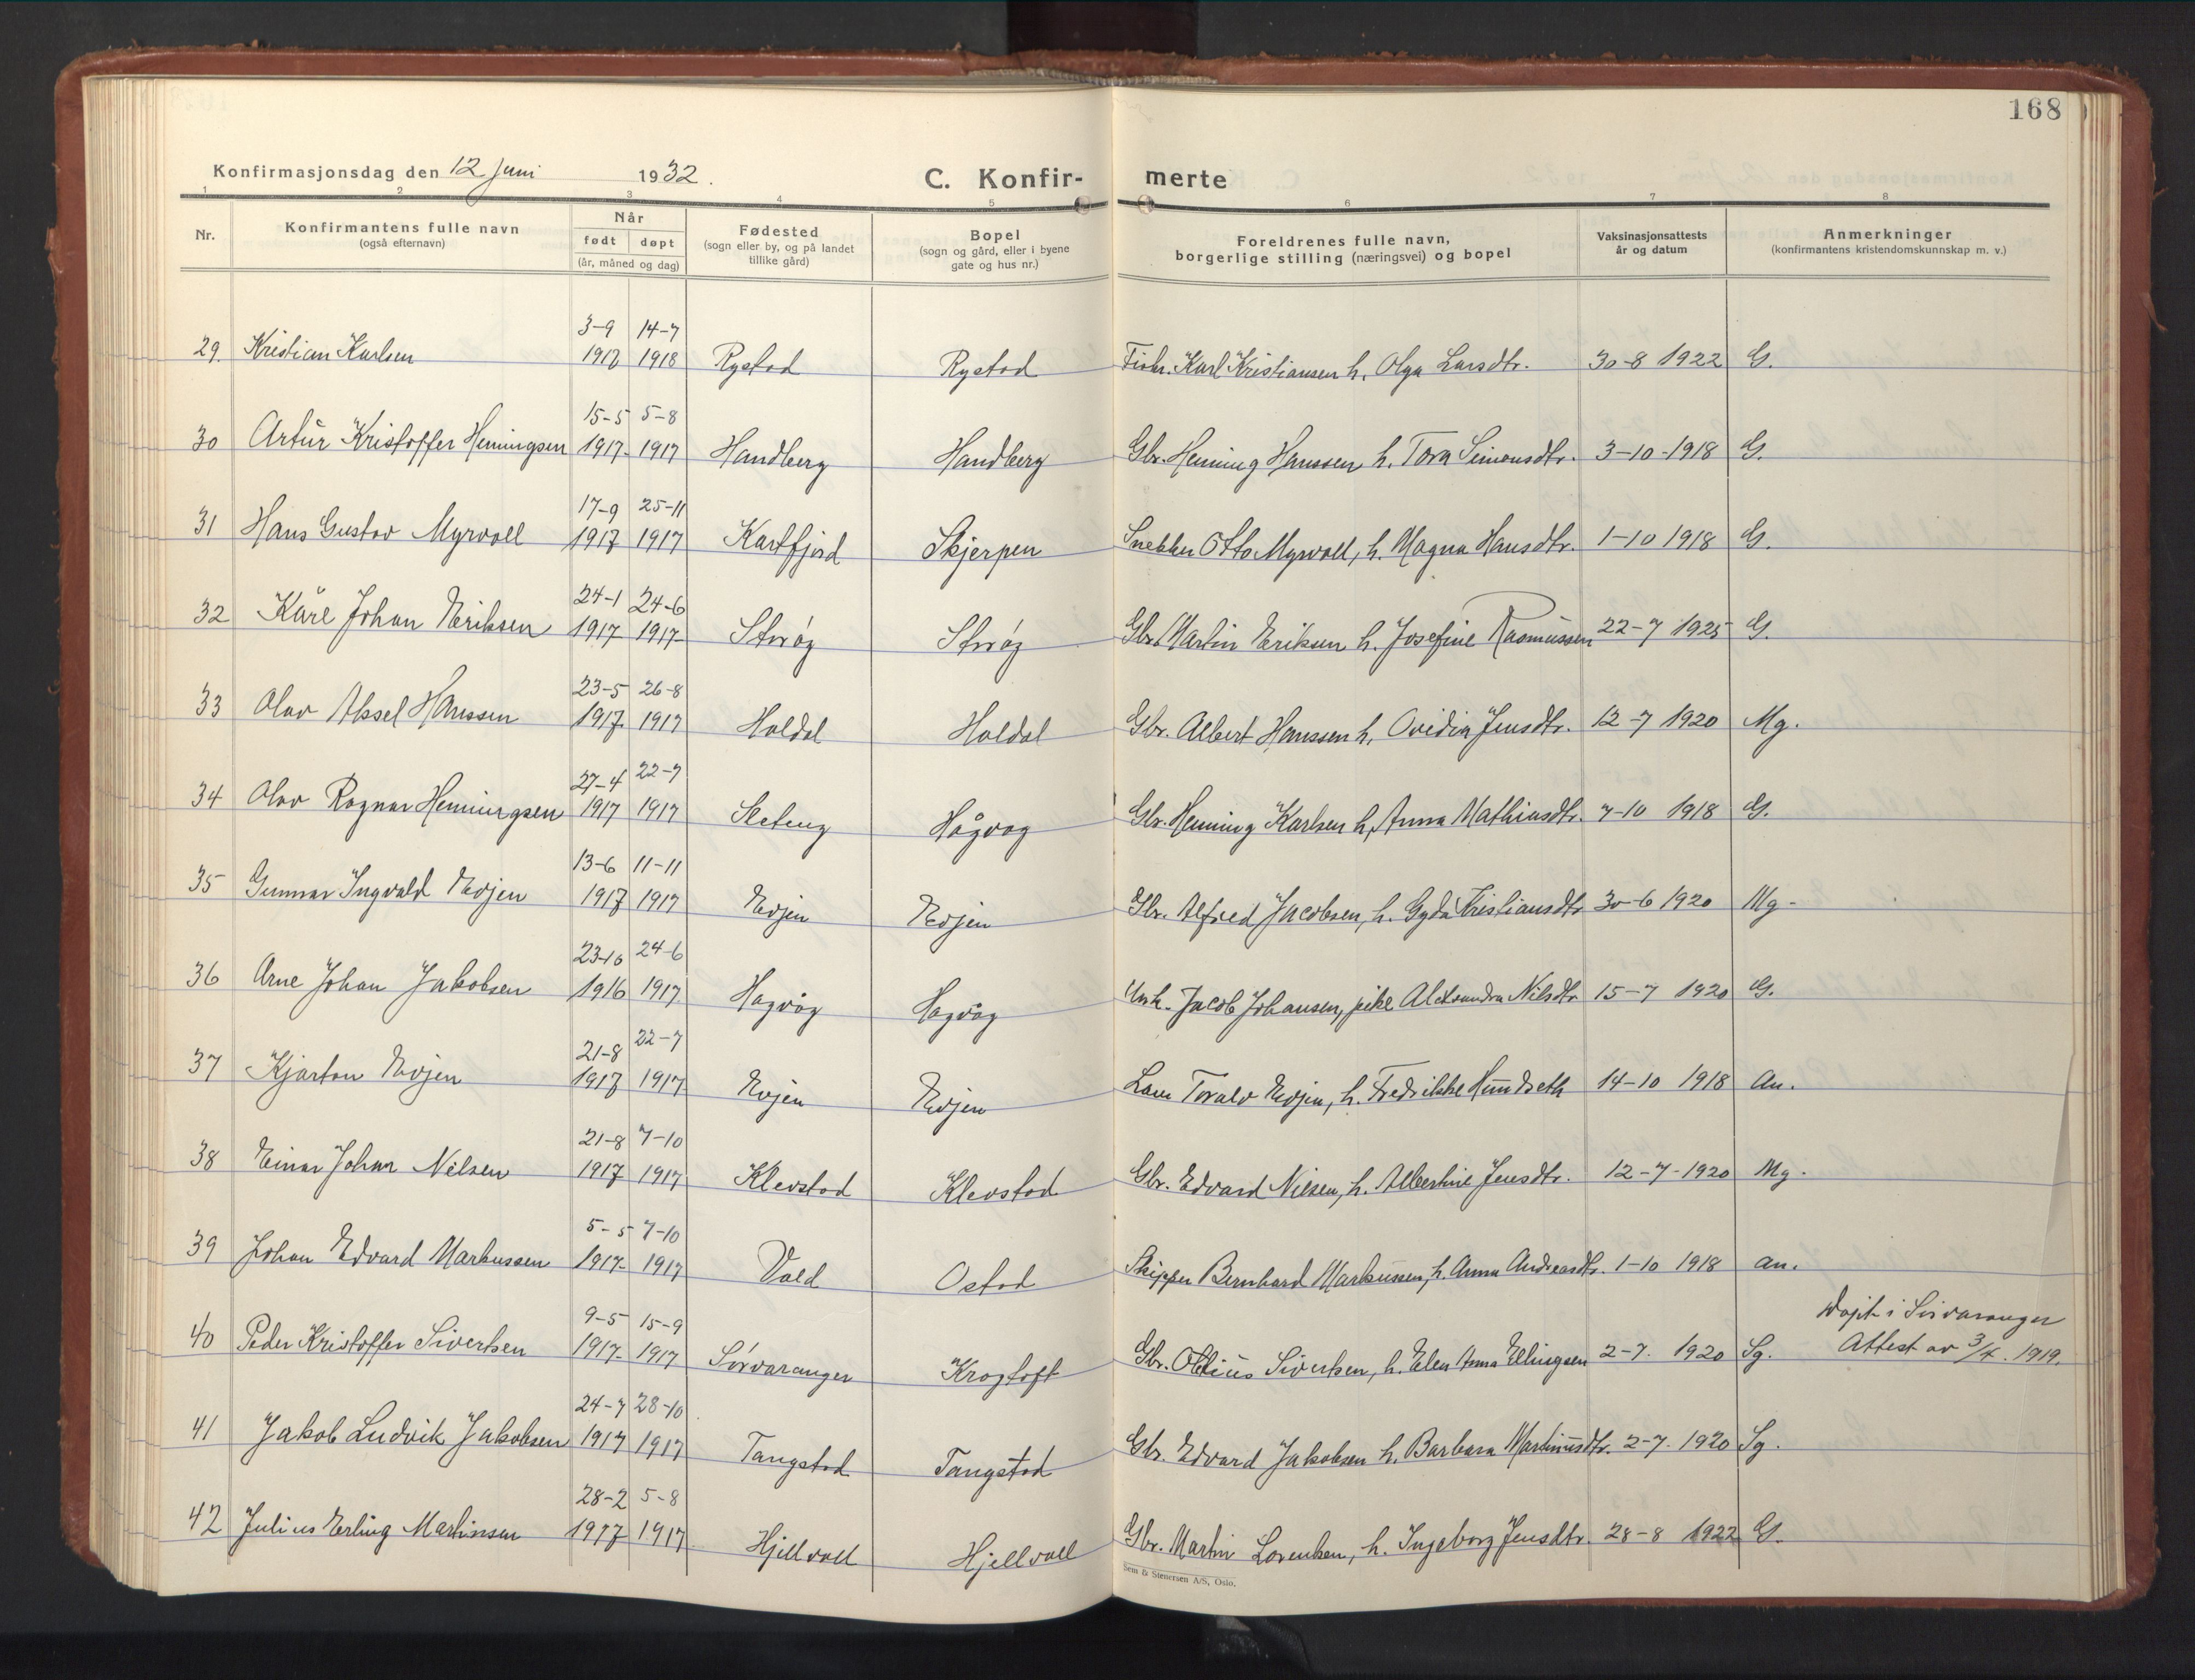 168
Konfirmasjonsdag den 12 Juni 1932.
C. Konfir- merte
1 2 3 4 5 6 7 8
Nr. Konfirmantens fulle navn (også efternavn) Når født døpt (år, måned og dag) Fødested (sogn eller by, og på landet tillike gård) Bopel (sogn og gård, eller i byene gate og hus nr.) Foreldrenes fulle navn, borgerlige stilling (næringsvei) og bopel Vaksinasjonsattests år og datum Anmerkninger (konfirmantens kristendomskunnskap m. v.)
3-9 14-7
29. Kristian Karlsen 1917 1918 Rystad Rystad Fisker. Karl Kristiansen h. Olga Larsdtr. 30-8 1922 G.
15-5 5-8
30 Artur Kristoffer Hemingsen 1917- 1917 Handberg Handberg Gbr. Heming Hanssen h. Tora Simonsdtr. 3-10-1918 G.
17-9 25-11
31 Hans Gustav Myrvoll 1917 1917 Kartfjord Skjerpen Snekker Otto Myrvoll, h. Magna Hansdtr. 1-10 1918 G.
24-1 24-6
32 Kåre Johan Eriksen 1917 1917- Storøy Storøy Gbr Martin Eriksen h. Josefine Rasmussen 22-7 1925 G.
23-5 26-8
33 Olav Aksel Hanssen 1917- 1917 Holdal Holdal Gbr. Albert Hanssen h. Ovidia Jensdtr. 12-7 1920 Mg.
27-4 22-7
34 Olav Ragnar Hemingsen 1917 1917 Sleteng Hågvåg Gbr. Heming Karlsen h, Anna Mathiasdtr. 7-10 1918 G.
13-6 11-11
35 Gunnar Ingvald Evjen 1917 1917 Evjen Evjen Gbr. Alfred Jacobsen, h. Gyda Kristiansdtr 30-6 1920 Mg-
23-10 24-6
36 Arne Johan Jakobsen 1916 1917 Hagvåg Hagvåg Unk. Jacob Johansen, pike Aleksandra Nilsdtr 15-7 1920 G.
21-8 22-7
37 Kjartan Evjen 1917 1917 Evjen Evjen Toralv Evjen, h. Fredrikke Hundseth 14-10 1918 An.
21-8 7-10
38 Einar Johan Nilsen 1917 1917 Klevstad Klevstad Gbr. Edvard Nilsen, h. Albertine Jensdtr. 12-7-1920 Mg.
5-5 7-10
39 Johan Edvard Markussen 1917- 1917 Vold Ostad Skipper Bernhard Markussen, h. Anna Andreasdtr. 1-10 1918 an.
9-5 15-9 Døpt i Sørvaranger
40 Peder Kristoffer Sivertsen 1917- 1917 Sørvaranger Krogtoft Gbr. Ottius Sivertsen, h. Elen Anna Ellingsen 2-7. 1920 Sg. Attest av 3/4. 1919.
24-7 28-10
41 Jakob Ludvik Jakobsen 1917 1917 Tangstad Tangstad Gbr. Edvard Jakobsen h. Barbara Martinusdtr. 2-7. 1920 Sg.
28-2 5-8
42 Julius Erling Martinsen 1917 1917 Hjellvoll Hjellvoll Gbr. Martin Lorentsen, h. Ingeborg Jensdtr. 28-8 1922 G.
Sem & Stenersen A/S, Oslo.